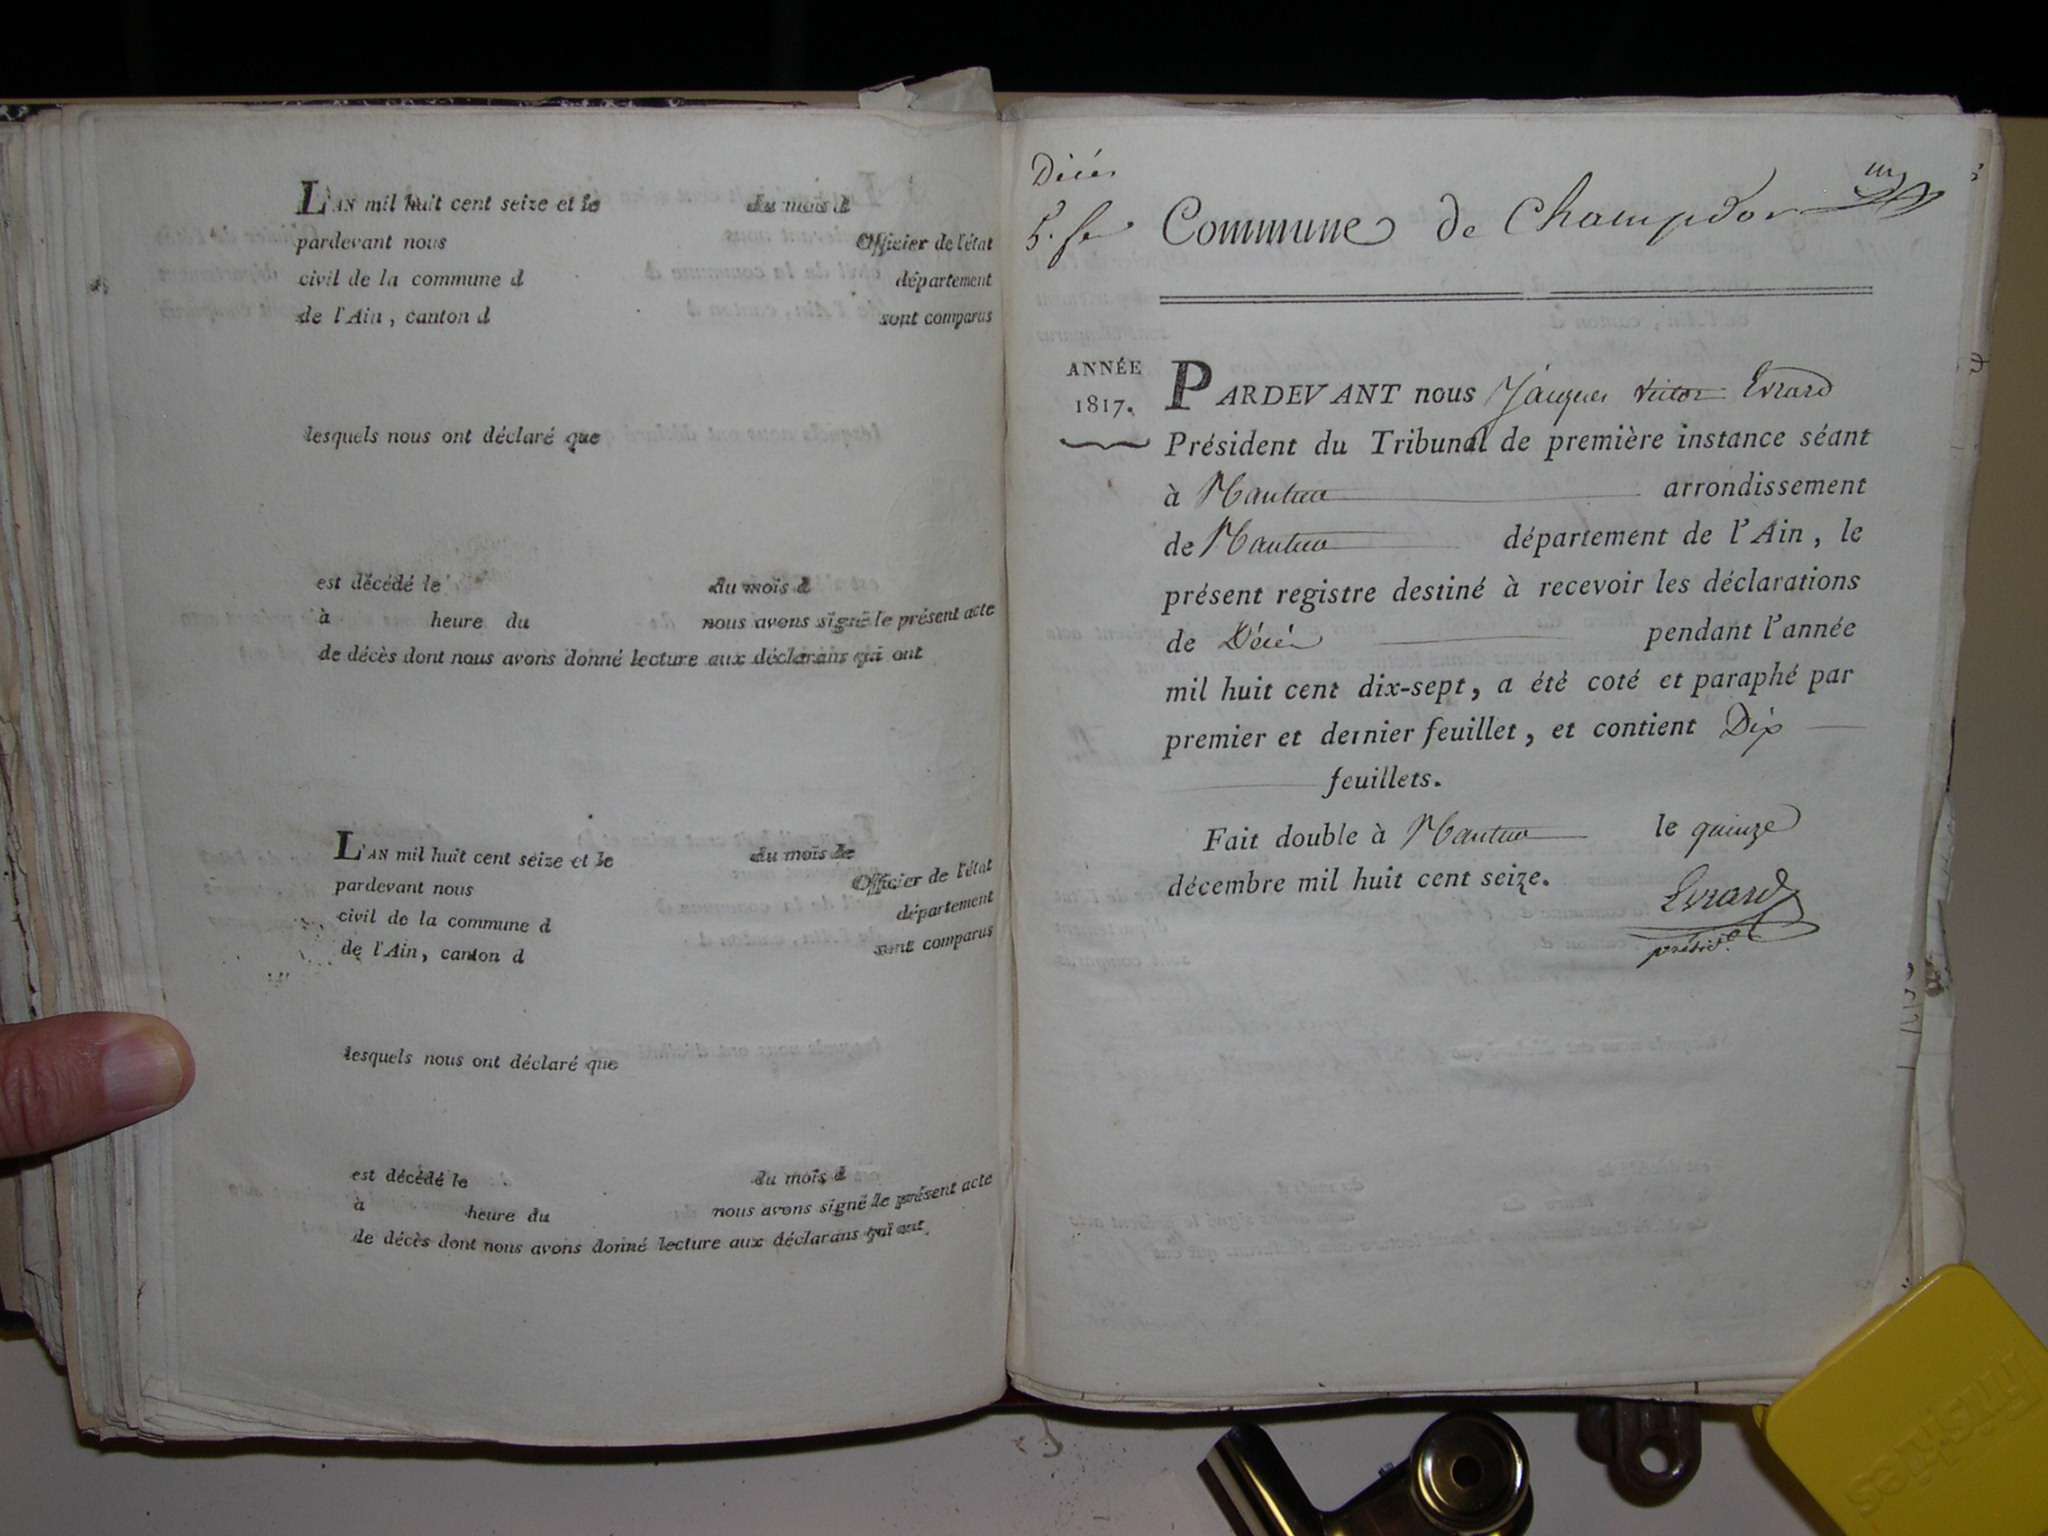 L'AN mil huit cent seize et le du mois d
pardevant nous Officier de l'état
civil de la commune d département
de l'Ain, canton d sont comparus
lesquels nous ont déclaré que
est décédé le du mois d
à heure du nous avons signé le présent acte
de décès dont nous avons donné lecture aux déclarans qui ont
L'AN mil huit cent seize et le du mois de
pardevant nous Officier de l'état
civil de la commune d département
de l'Ain, canton d sont comparus
lesquels nous ont déclaré que
est décédé le du mois d
à heure du nous avons signé le présent acte
de décès dont nous avons donné lecture aux déclarans qui ont
Décès
Commune de Champdor
ANNÉE
1817.
PARDEVANT nous Jacques Victor Evrard
Président du Tribunal de première instance séant
à Nantua arrondissement
de Nantua département de l'Ain, le
présent registre destiné à recevoir les déclarations
de Décès pendant l'année
mil huit cent dix-sept, a été coté et paraphé par
premier et dernier feuillet, et contient Dix
feuillets.
Fait double à Nantua le quinze
décembre mil huit cent seize.
Evrard
présid.t